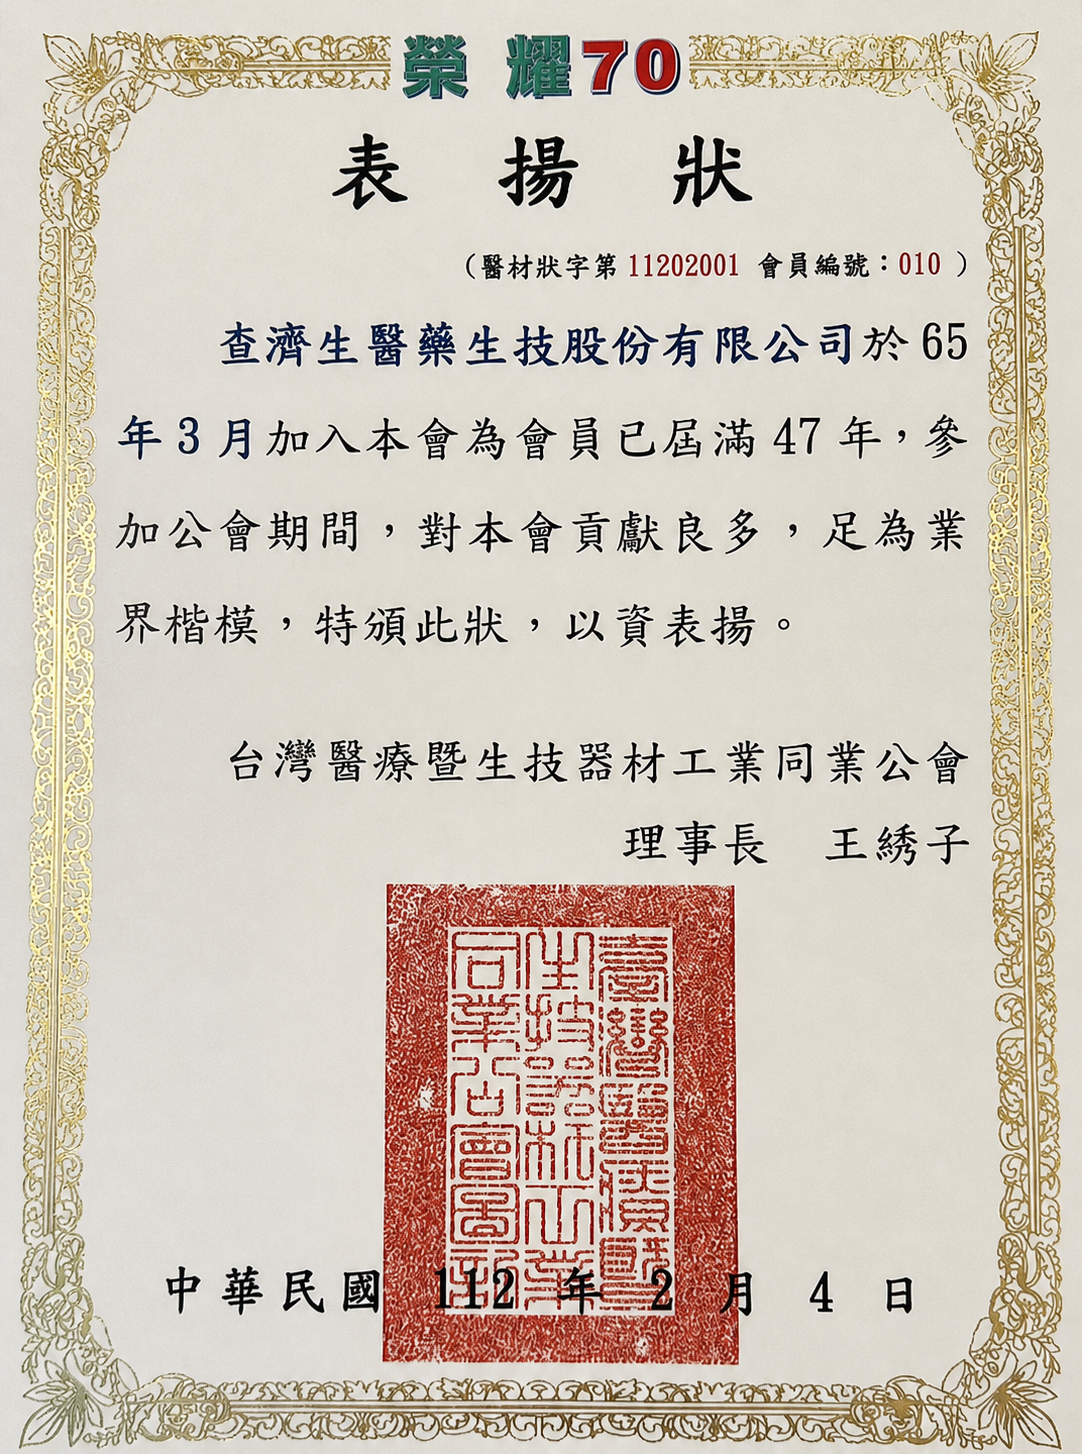 榮耀70
表揚狀
（醫材狀字第 11202001 會員編號：010 ）
查濟生醫藥生技股份有限公司於 65
年 3 月加入本會為會員已屆滿 47 年，參
加公會期間，對本會貢獻良多，足為業
界楷模，特頒此狀，以資表揚。
台灣醫療暨生技器材工業同業公會
理事長　王綉子
中華民國 112 年 2 月 4 日